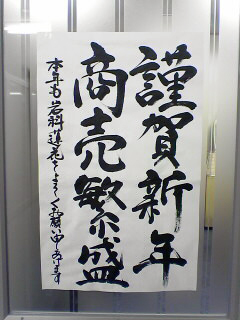 謹賀新年
商売繁盛
本年も岩科蓮花をよろしくお願い申しあげます